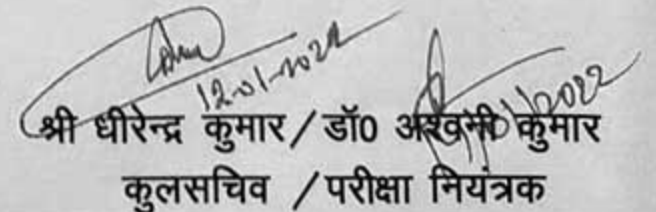 12-01-2022
श्री धीरेन्द्र कुमार / डॉ0 अश्वनी कुमार
कुलसचिव / परीक्षा नियंत्रक